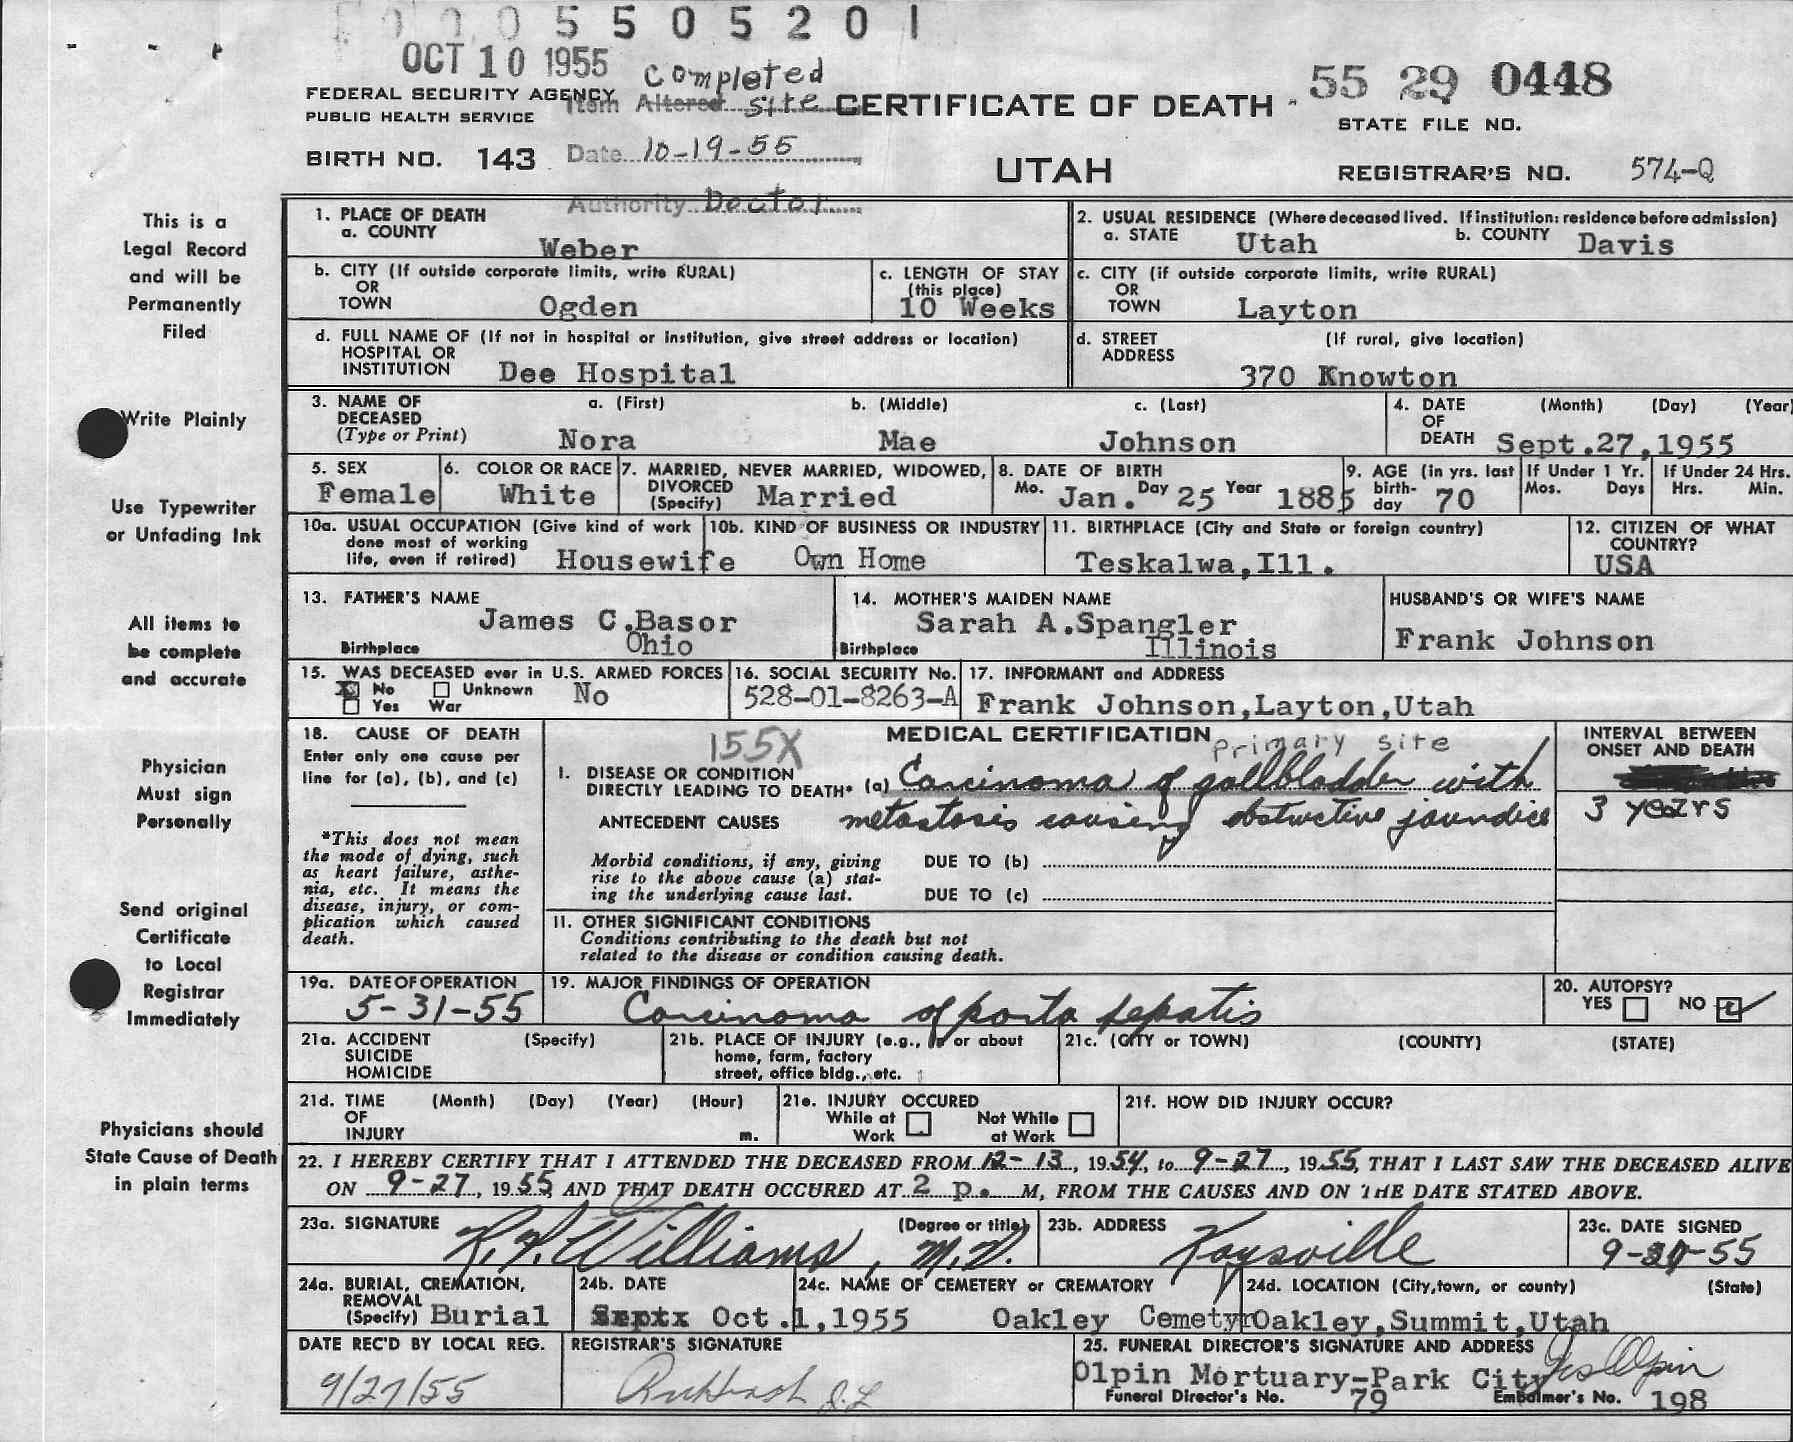 5 5 0 5 2 0 1
OCT 10 1955 Completed
FEDERAL SECURITY AGENCY Item Altered site CERTIFICATE OF DEATH 55 29 0448
PUBLIC HEALTH SERVICE STATE FILE NO.
BIRTH NO. 143 Date 10-19-55 UTAH REGISTRAR'S NO. 574-Q
Authority Doctor
This is a
Legal Record
and will be
Permanently
Filed
Write Plainly
Use Typewriter
or Unfading Ink
All items to
be complete
and accurate
Physician
Must sign
Personally
Send original
Certificate
to Local
Registrar
Immediately
Physicians should
State Cause of Death
in plain terms
1. PLACE OF DEATH
a. COUNTY Weber
2. USUAL RESIDENCE (Where deceased lived. If institution: residence before admission)
a. STATE Utah b. COUNTY Davis
b. CITY (If outside corporate limits, write RURAL)
OR
TOWN Ogden
c. LENGTH OF STAY
(this place)
10 Weeks
c. CITY (if outside corporate limits, write RURAL)
OR
TOWN Layton
d. FULL NAME OF (If not in hospital or institution, give street address or location)
HOSPITAL OR
INSTITUTION Dee Hospital
d. STREET (If rural, give location)
ADDRESS
370 Knowton
3. NAME OF a. (First) b. (Middle) c. (Last)
DECEASED
(Type or Print) Nora Mae Johnson
4. DATE (Month) (Day) (Year)
OF
DEATH Sept.27,1955
5. SEX
Female
6. COLOR OR RACE
White
7. MARRIED, NEVER MARRIED, WIDOWED,
DIVORCED
(Specify) Married
8. DATE OF BIRTH
Mo. Jan. Day 25 Year 1885
9. AGE (in yrs. last
birth-
day 70
If Under 1 Yr.
Mos. Days
If Under 24 Hrs.
Hrs. Min.
10a. USUAL OCCUPATION (Give kind of work
done most of working
life, even if retired) Housewife
10b. KIND OF BUSINESS OR INDUSTRY
Own Home
11. BIRTHPLACE (City and State or foreign country)
Teskalwa,Ill.
12. CITIZEN OF WHAT
COUNTRY?
USA
13. FATHER'S NAME
James C.Basor
Birthplace Ohio
14. MOTHER'S MAIDEN NAME
Sarah A.Spangler
Birthplace Illinois
HUSBAND'S OR WIFE'S NAME
Frank Johnson
15. WAS DECEASED ever in U.S. ARMED FORCES
No Unknown No
Yes War
16. SOCIAL SECURITY No.
528-01-8263-A
17. INFORMANT and ADDRESS
Frank Johnson,Layton,Utah
18. CAUSE OF DEATH
Enter only one cause per
line for (a), (b), and (c)
*This does not mean
the mode of dying, such
as heart failure, asthe-
nia, etc. It means the
disease, injury, or com-
plication which caused
death.
155X MEDICAL CERTIFICATION primary site
I. DISEASE OR CONDITION
DIRECTLY LEADING TO DEATH* (a) Carcinoma of gallbladder with
ANTECEDENT CAUSES metastasis causing obstructive jaundice
Morbid conditions, if any, giving DUE TO (b)
rise to the above cause (a) stat-
ing the underlying cause last. DUE TO (c)
INTERVAL BETWEEN
ONSET AND DEATH
3 years
II. OTHER SIGNIFICANT CONDITIONS
Conditions contributing to the death but not
related to the disease or condition causing death.
19a. DATE OF OPERATION
5-31-55
19. MAJOR FINDINGS OF OPERATION
Carcinoma of porta hepatis
20. AUTOPSY?
YES NO
21a. ACCIDENT (Specify)
SUICIDE
HOMICIDE
21b. PLACE OF INJURY (e.g., in or about
home, farm, factory
street, office bldg., etc.
21c. (CITY or TOWN) (COUNTY) (STATE)
21d. TIME (Month) (Day) (Year) (Hour)
OF
INJURY m.
21e. INJURY OCCURED
While at Not While
Work at Work
21f. HOW DID INJURY OCCUR?
22. I HEREBY CERTIFY THAT I ATTENDED THE DECEASED FROM 12-13, 1954, to 9-27, 1955, THAT I LAST SAW THE DECEASED ALIVE
ON 9-27, 1955, AND THAT DEATH OCCURED AT 2 p. M, FROM THE CAUSES AND ON THE DATE STATED ABOVE.
23a. SIGNATURE (Degree or title)
Williams, M.D.
23b. ADDRESS
Kaysville
23c. DATE SIGNED
9-30-55
24a. BURIAL, CREMATION,
REMOVAL
(Specify) Burial
24b. DATE
Oct.1,1955
24c. NAME OF CEMETERY or CREMATORY
Oakley Cemetyr
24d. LOCATION (City, town, or county) (State)
Oakley,Summit,Utah
DATE REC'D BY LOCAL REG.
9/27/55
REGISTRAR'S SIGNATURE
25. FUNERAL DIRECTOR'S SIGNATURE AND ADDRESS
Olpin Mortuary-Park City Olpin
Funeral Director's No. 79 Embalmer's No. 198